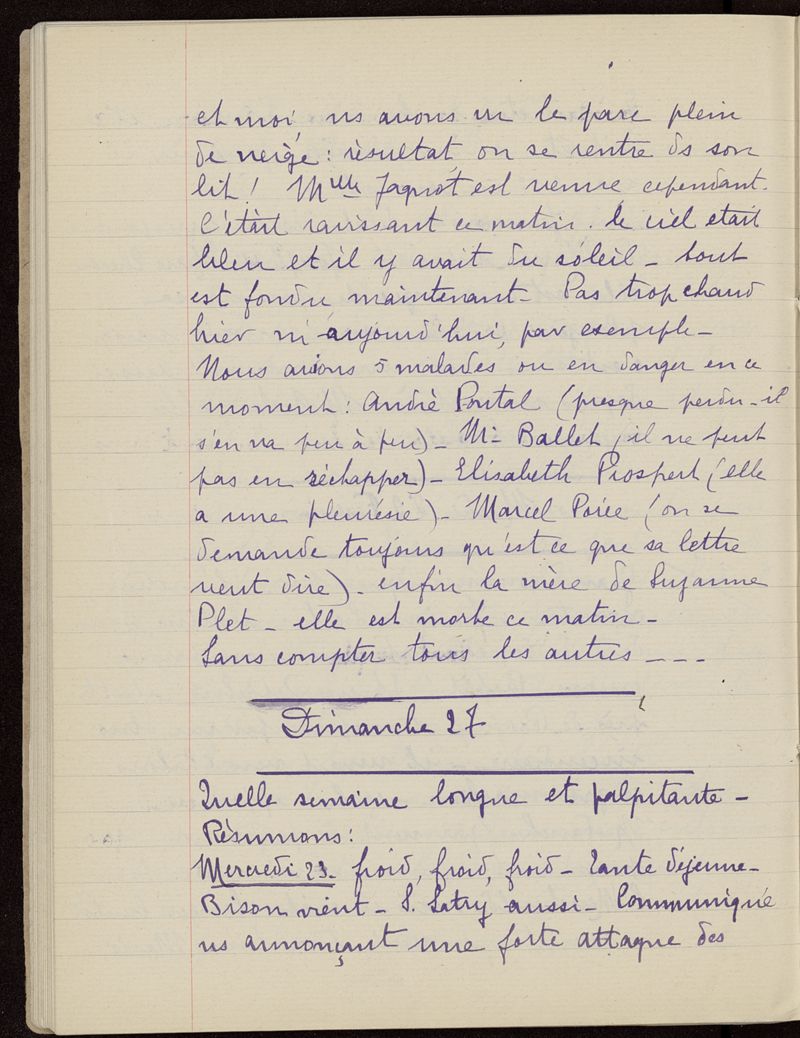 et moi, ns avons vu le parc plein
de neige : résultat, on se rentre ds son
lit ! Mlle Jagnot est venue cependant.
C'était ravissant ce matin. le ciel était
bleu et il y avait du soleil - tout
est fondu maintenant - Pas trop chaud
hier ni aujourd'hui, par exemple -
Nous avions 5 malades ou en danger en ce
moment : André Pontal (presque perdu - il
s'en va peu à peu) - Mr Ballet (il ne peut
pas en réchapper) - Elisabeth Prospert (elle
a une pleurésie) - Marcel Poiée (on se
demande toujours qu'est ce que sa lettre
veut dire) - enfin la mère de Suzanne
Plet - elle est morte ce matin -
Sans compter tous les autres - - -
Dimanche 27
Quelle semaine longue et palpitante -
Résumons :
Mercredi 23 - froid, froid, froid - Tante déjeune -
Bison vient - S. Satry aussi - Communiqué
ns annonçant une forte attaque des